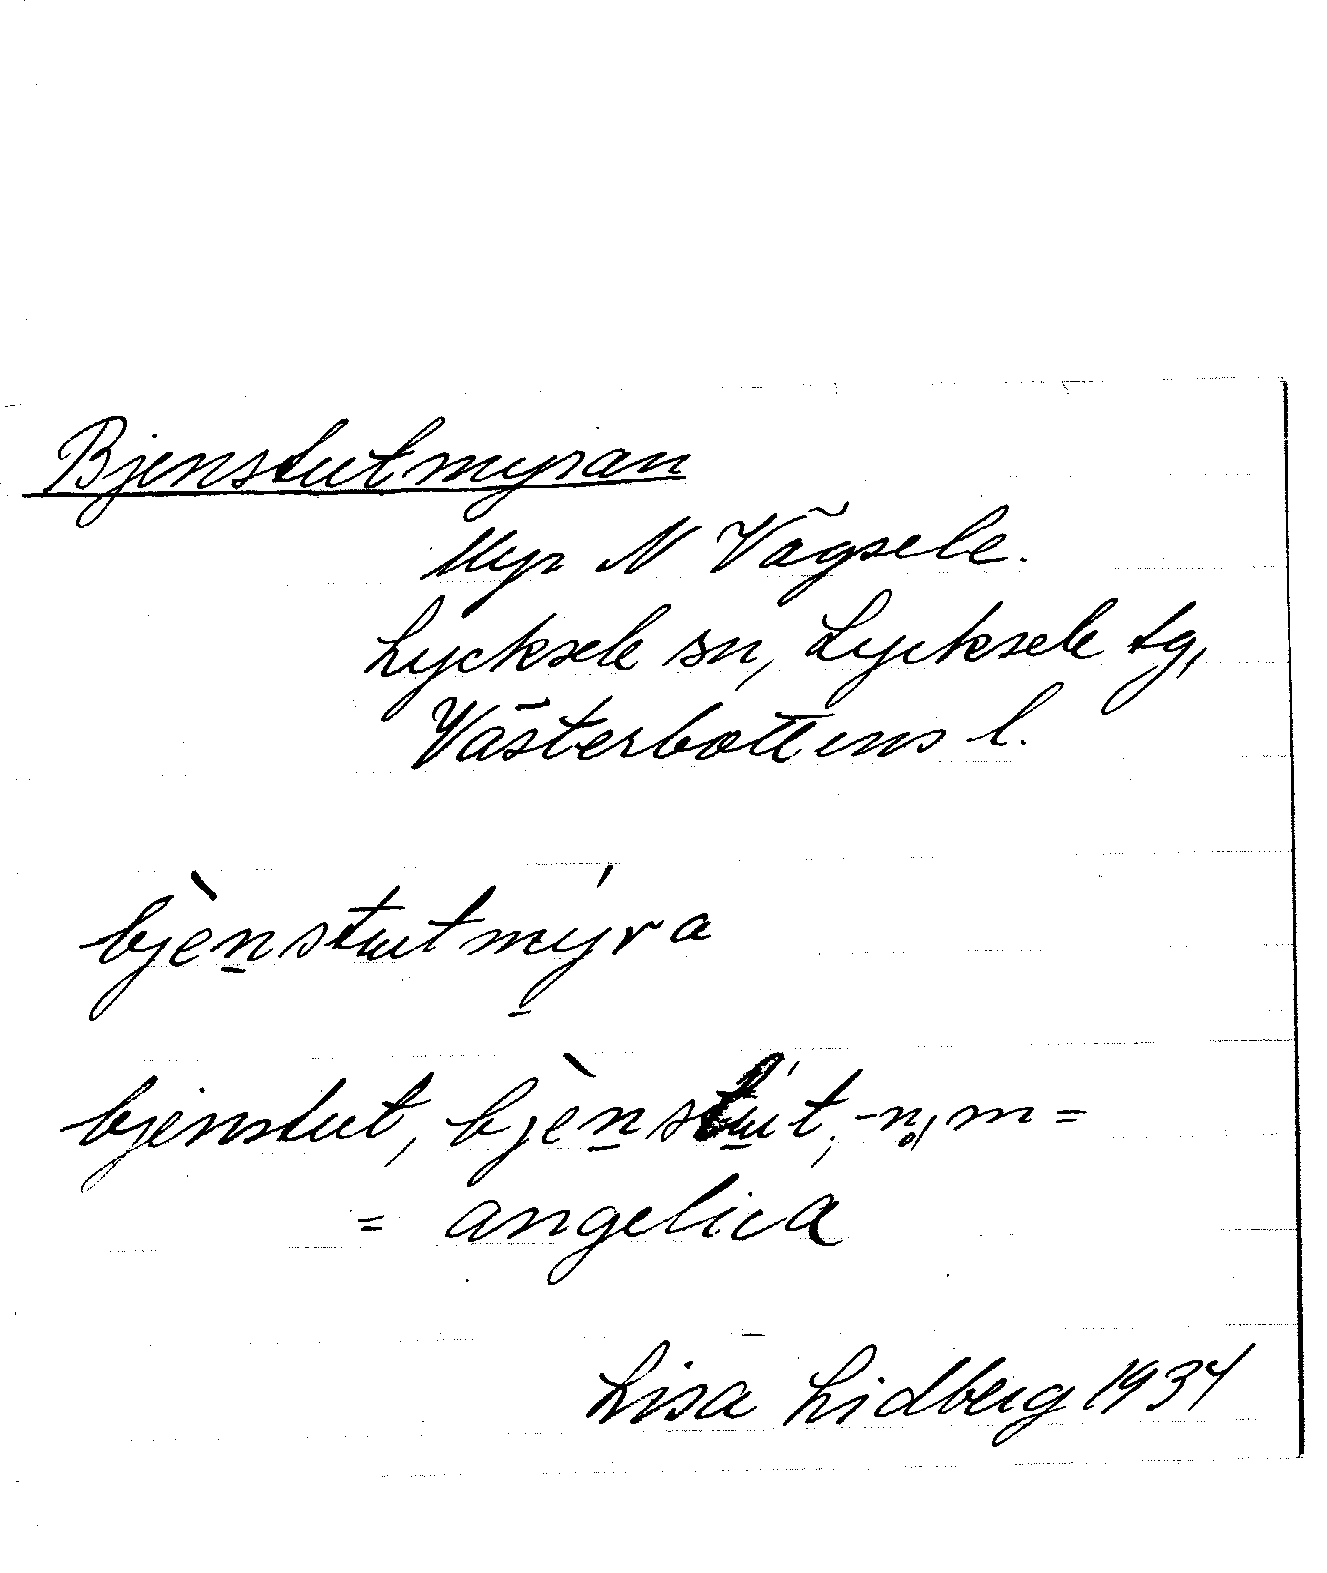 Bjenstutmyran
Myr N Vägsele.
Lycksele sn, Lycksele tg,
Västerbottens l.
bjènstutmýra
bjenstut, bjènstút, -n, m =
= angelica
Lisa Lidberg 1934